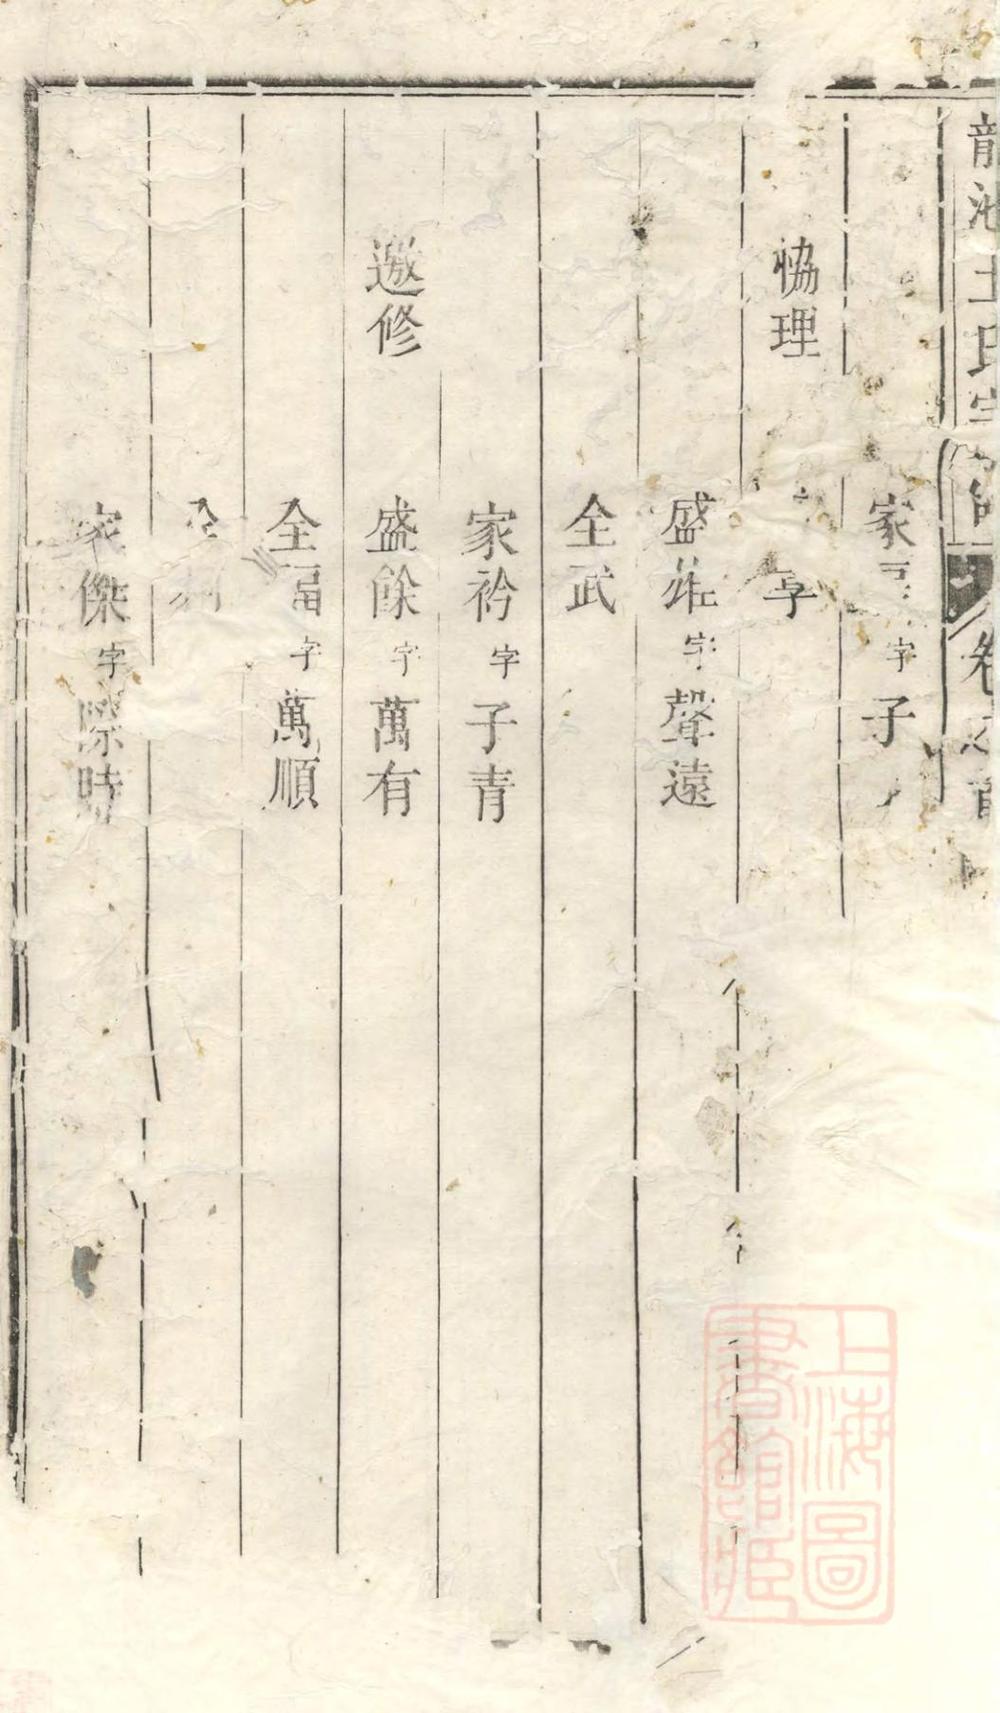 龍池王氏宗
卷之首
家 字子
協理
盛 字聲遠
全武
家衿字子青
邀修
盛餘字萬有
全福字萬順
家傑字際時
上海圖書館藏